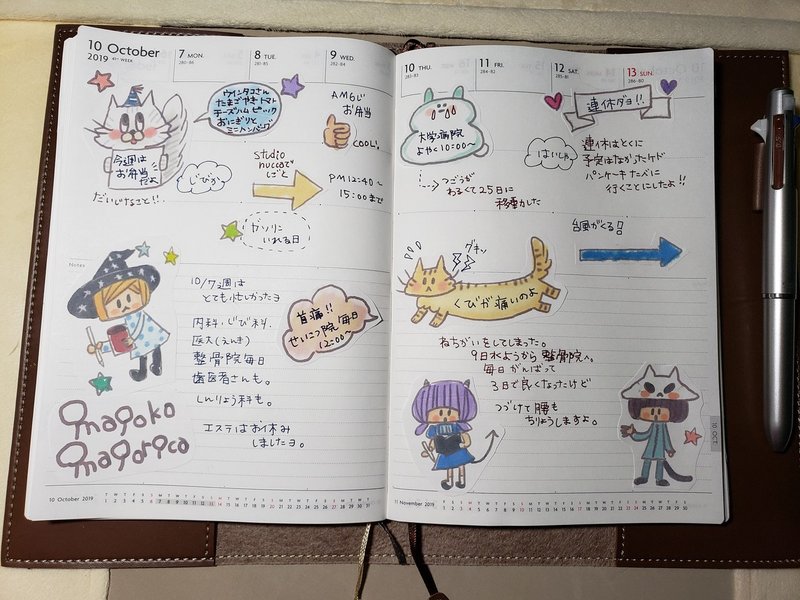 10 October
2019 41st WEEK
7 MON.
280-86
8 TUE.
281-85
9 WED.
282-84
ウインタコさん
たまごやきトマト
チーズハム ピック
おにぎりと
ミニハンバーグ
今週は
お弁当
だよ
だいじなこと!!
じびか
studio
nuccaで
しごと
ガソリン
いれる日
AM6じ
お弁当
COOL。
PM12:40〜
15:00まで
Notes
10/7週は
とても忙しかったヨ
内科・じび科・
医大(えんき)
整骨院毎日
歯医者さんも。
しんりょう科も。
エステはお休み
しましたヨ。
首痛!!
せいこつ院 毎日
12:00〜
inayoko
inayorica
10 October 2019
T W T F S S M T W T F S S M T W T F S S M T W T F S S M T W T
1 2 3 4 5 6 7 8 9 10 11 12 13 14 15 16 17 18 19 20 21 22 23 24 25 26 27 28 29 30 31
10 THU.
283-83
11 FRI.
284-82
12 SAT.
285-81
13 SUN.
286-80
大学病院
よやく10:00〜
つごうが
わるくて25日に
移動した
はいしゃ
連休ダヨ!!
連休はとくに
予定はなかったケド
パンケーキ たべに
行くことにしたよ!!
台風がくる
グキッ
くびが痛いのよ
ねちがいをしてしまった。
9日水ようから 整骨院へ。
毎日 がんばって
3日で良くなったけど
つづけて 腰も
ちりょうしますよ。
10 OCT.
11 November 2019
F S S M T W T F S S M T W T F S S M T W T F S S M T W T F S
1 2 3 4 5 6 7 8 9 10 11 12 13 14 15 16 17 18 19 20 21 22 23 24 25 26 27 28 29 30